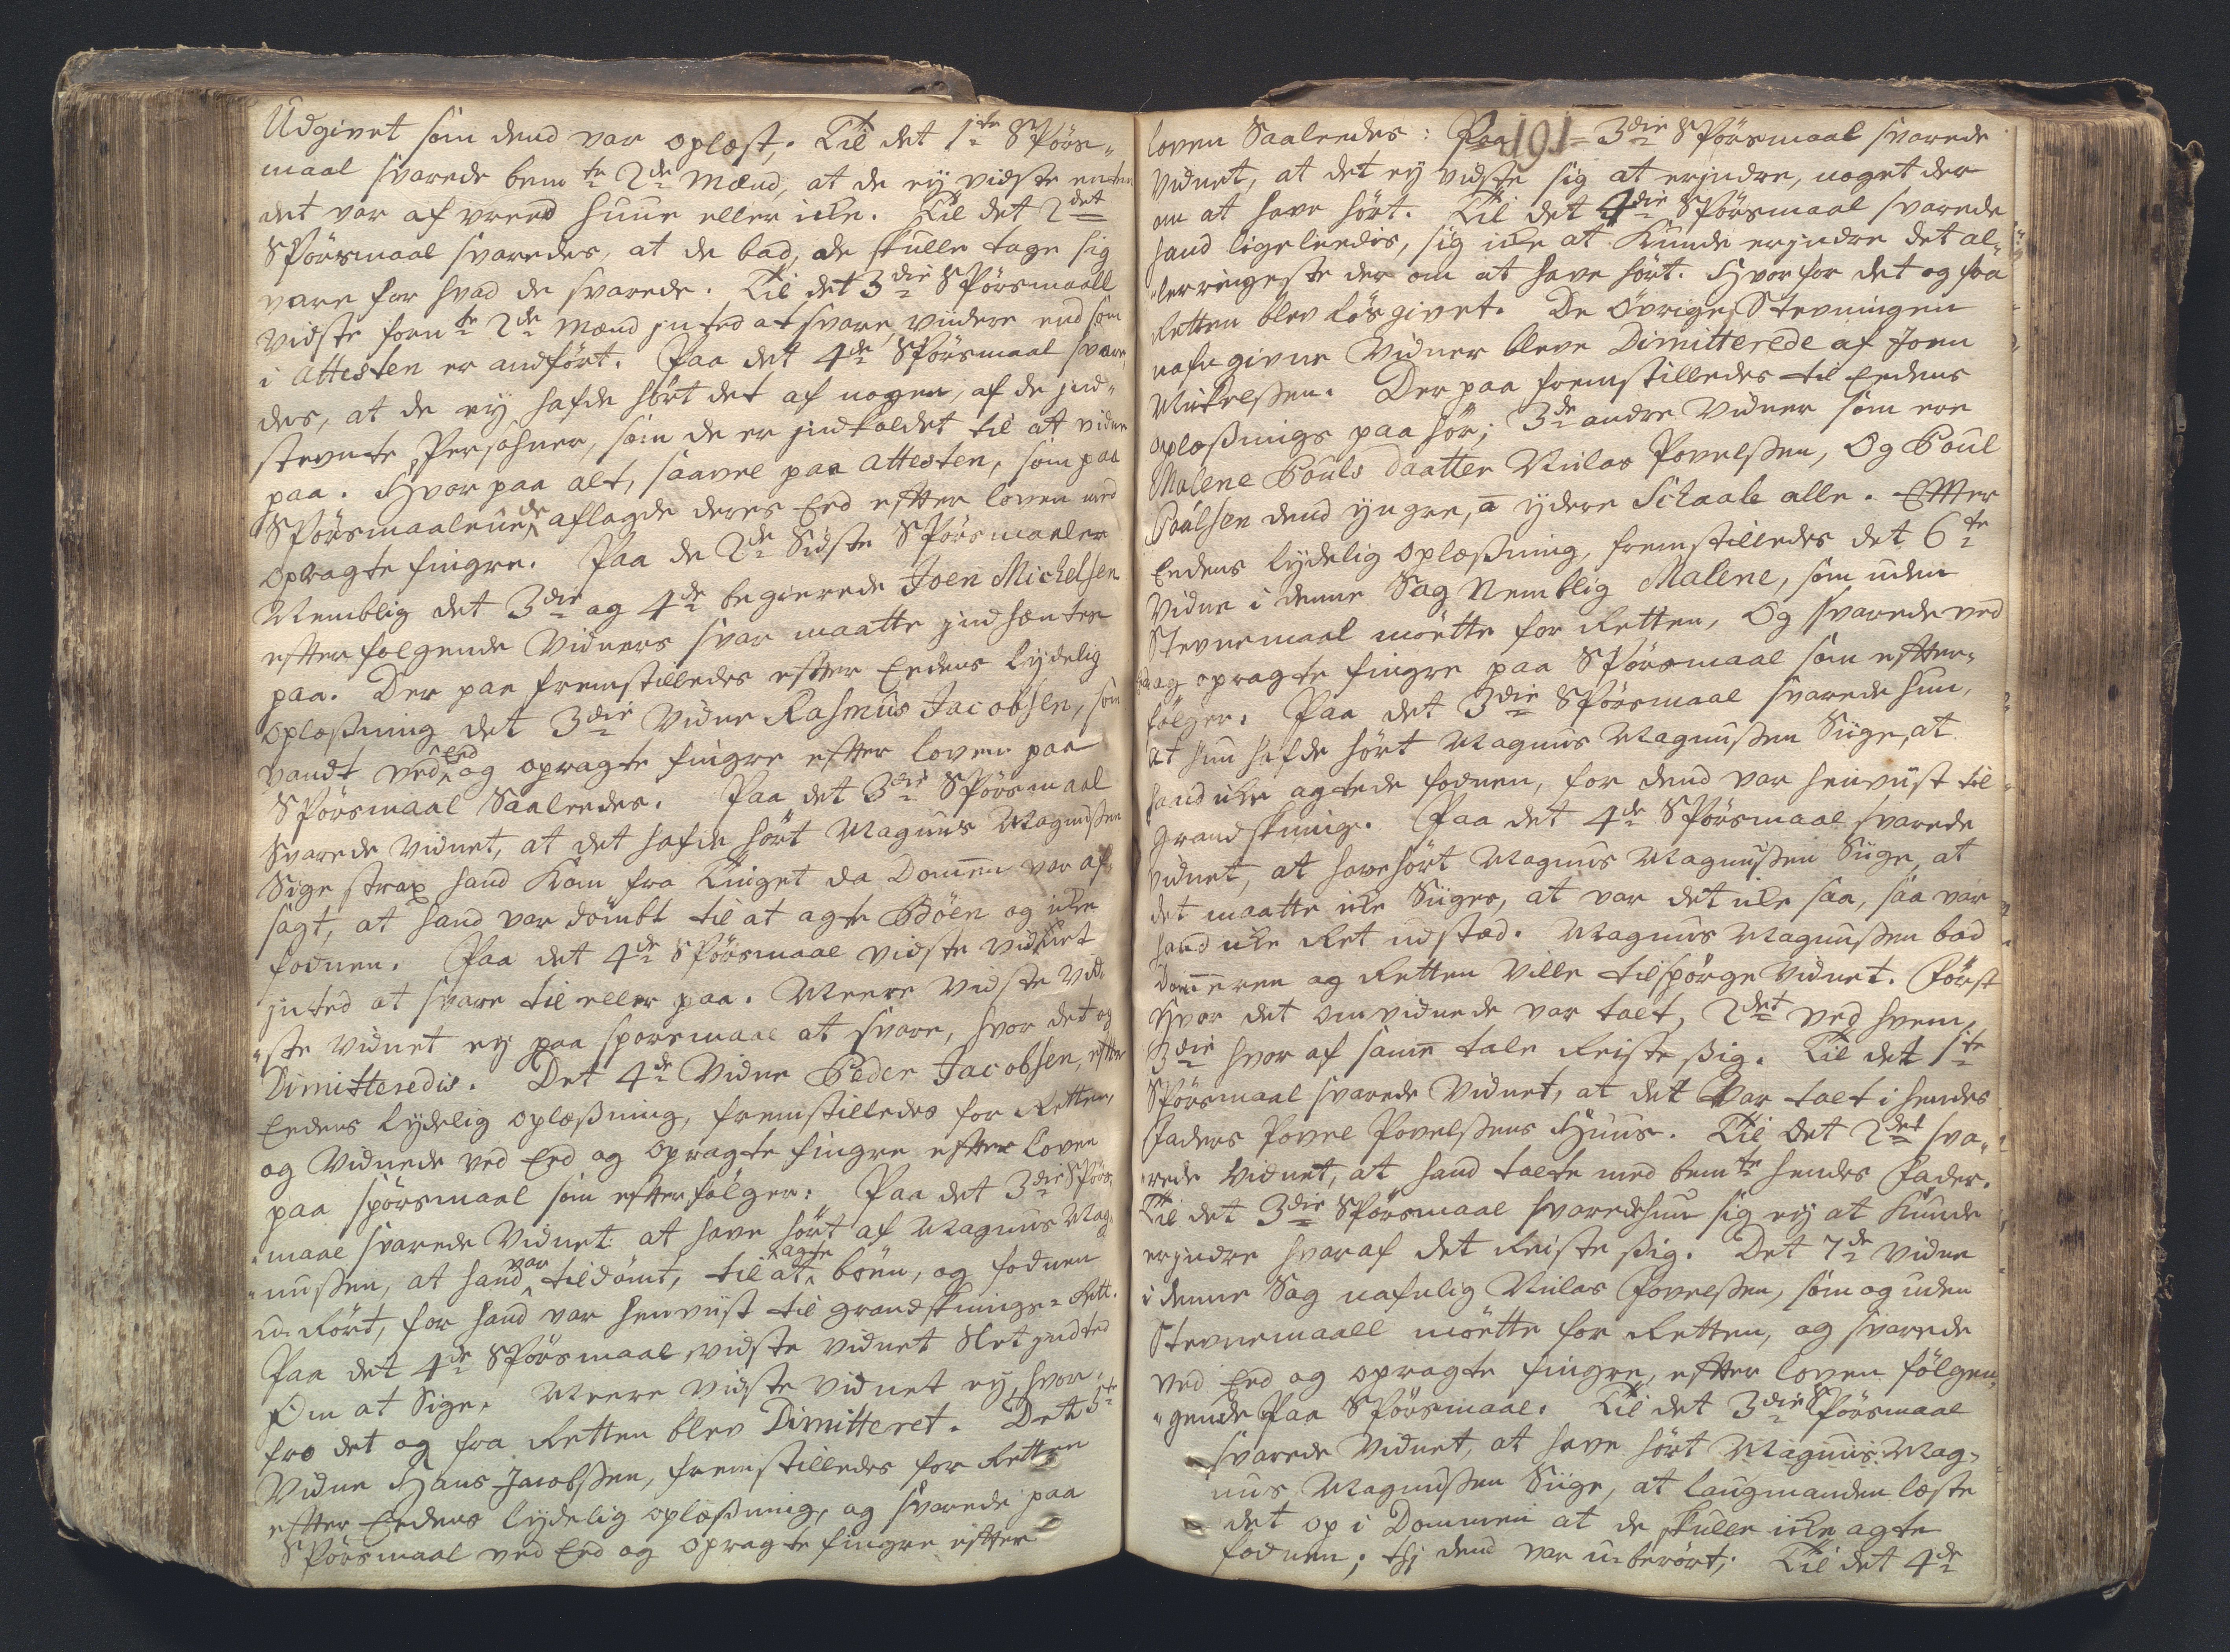 Udgivet som dend var oplæst. Til det 1te Spörs„
maal svarede bemte 2de Mænd, at de ey vidste enten
det var af vreed huue eller icke. Til det 2det
Spörsmaal svaredes, at de bad, de skulle tage sig
vare for hvad de svarede. Til det 3die Spörsmaall
vidste fornte 2de Mænd inted at svare, viidere end som
i Attesten er andfört. Paa det 4de Spörsmaal svare„
des, at de ey hafde hört det af nogen, af de ind„
stevnte Persohner, som de er indkaldet til at vidne
paa. Hvor paa alt, saavel paa Attesten, som paa
Spörsmaalene, de aflagde deres Eed efter loven med
opragte fingre. Paa de 2de Sidste Spörsmaaler
Nemblig det 3die og 4de begierede Joen Michelsen
efterfölgende Vidners svar maatte indhentes
paa. Der paa fremstilledes efter Eedens lydelig
oplæsning det 3die Vidne Rasmus Jacobsen, som
vandt ved Eed og opragte fingre efter loven paa
Spörsmaal Saaleedes. Paa det 3die Spörsmaal
Svarede Vidnet, at det hafde hört Magnus Magnusen
Sige strax hand kom fra Tinget da Domen var af„
sagt, at hand var dömbt til at agte Böen og icke
foduen. Paa det 4de Spörsmaal vidste vidnet
inted at svare til eller paa. Meere vidste Vid„
„ste vidnet ey paa spörsmaal at svare, hvor det og
Dimitteredis. Det 4de Vidne Peder Jacobsen, efter
Eedens lydelig oplæsning, fremstilledes for Retten,
og Vidnede ved Eed og opragte fingre efter loven
paa spörsmaal som efterfölger: Paa det 3die Spörs„
„maal svarede Vidnet at have hört af Magnus Mag„
„nussen, at hand var tildömt, til at agte böen, og foduen
u-Rört, for hand var henviist til grandsknings-Rett.
Paa det 4de Spörsmaal vidste vidnet Slet indted
Om at Sige. Meere vidste vidnet ey, hvor„
fro det og fra Retten blev Dimitteret. Det 5te
Vidne Hans Jacobsen, fremstilledes for Retten
efter Eedens lydelig oplæsning, og svarede paa
Spörsmaal ved Eed og opragte fingre efter
191
loven Saaleedes: Paa 3die Spörsmaal svarede
Vidnet, at det ey vidste sig at erindre, noget der
om at have hört. Til det 4die Spörsmaal svarede
hand ligeleedis, sig icke at kunde erindre det al„
„lerringeste der om at have hört. Hvor for det og fra
Retten blev lösgivet. De övrige, Stevningen
nafngivne Vidner bleve Dimitterede af Joen
Mickelsen. Der paa fremstilledes til Eedens
oplæsnings paa hör; 3de andre Vidner som ere
Malene Pouls daatter Niclas Povelsen, Og Poul
Poulsen dend yngre, a ydere Schaale alle. Efter
Eedens lydelig oplæsning, fremstilledes det 6te
Vidne i denne Sag Nemblig Malene, som uden
Stevnemaal mötte for Retten, Og svarede ved
Eed og opragte fingre paa Spörsmaal som efter„
fölger. Paa det 3die Spörsmaal svarede hun,
at hun hafde hört Magnus Magnussen Siige, at
hand icke agtede foduen, for dend var henviist til
grandskning. Paa det 4de Spörsmaal svarede
vidnet, at have hört Magnus Magnussen Siige, at
det maatte icke Siiges, at var det icke saa, saa var
hand icke Ret udstæd. Magnus Magnussen bad
Domeren og Retten ville tilspörge Vidnet. Först
Hvor det omvidnede var talt, 2det ved hvem,
3die hvor af samme tale Reiste sig. Til det 1te
Spörsmaal svarede Vidnet, at det var talt i hendes
Faders Povel Povelsens Huus. Til det 2det sva„
„rede Vidnet, at hand talte med bemte hendes Fader.
Til det 3die Spörsmaal svarede hun sig ey at kunde
erindre hvor af det Reiste sig. Det 7de Vidne
i denne Sag nafnlig Niclas Povelsen, som og uden
Stevnemaall mötte for Retten, og svarede
ved Eed og opragte fingre, efter loven fölgen„
„gende Paa Spörsmaal. Til det 3die Spörsmaal
svarede Vidnet, at have hört Magnus Mag„
nus Magnussen Siige, at laugmanden læste
det op i Dommen at de skulle icke agte
foduen, thi dend var u-berört. Til det 4de